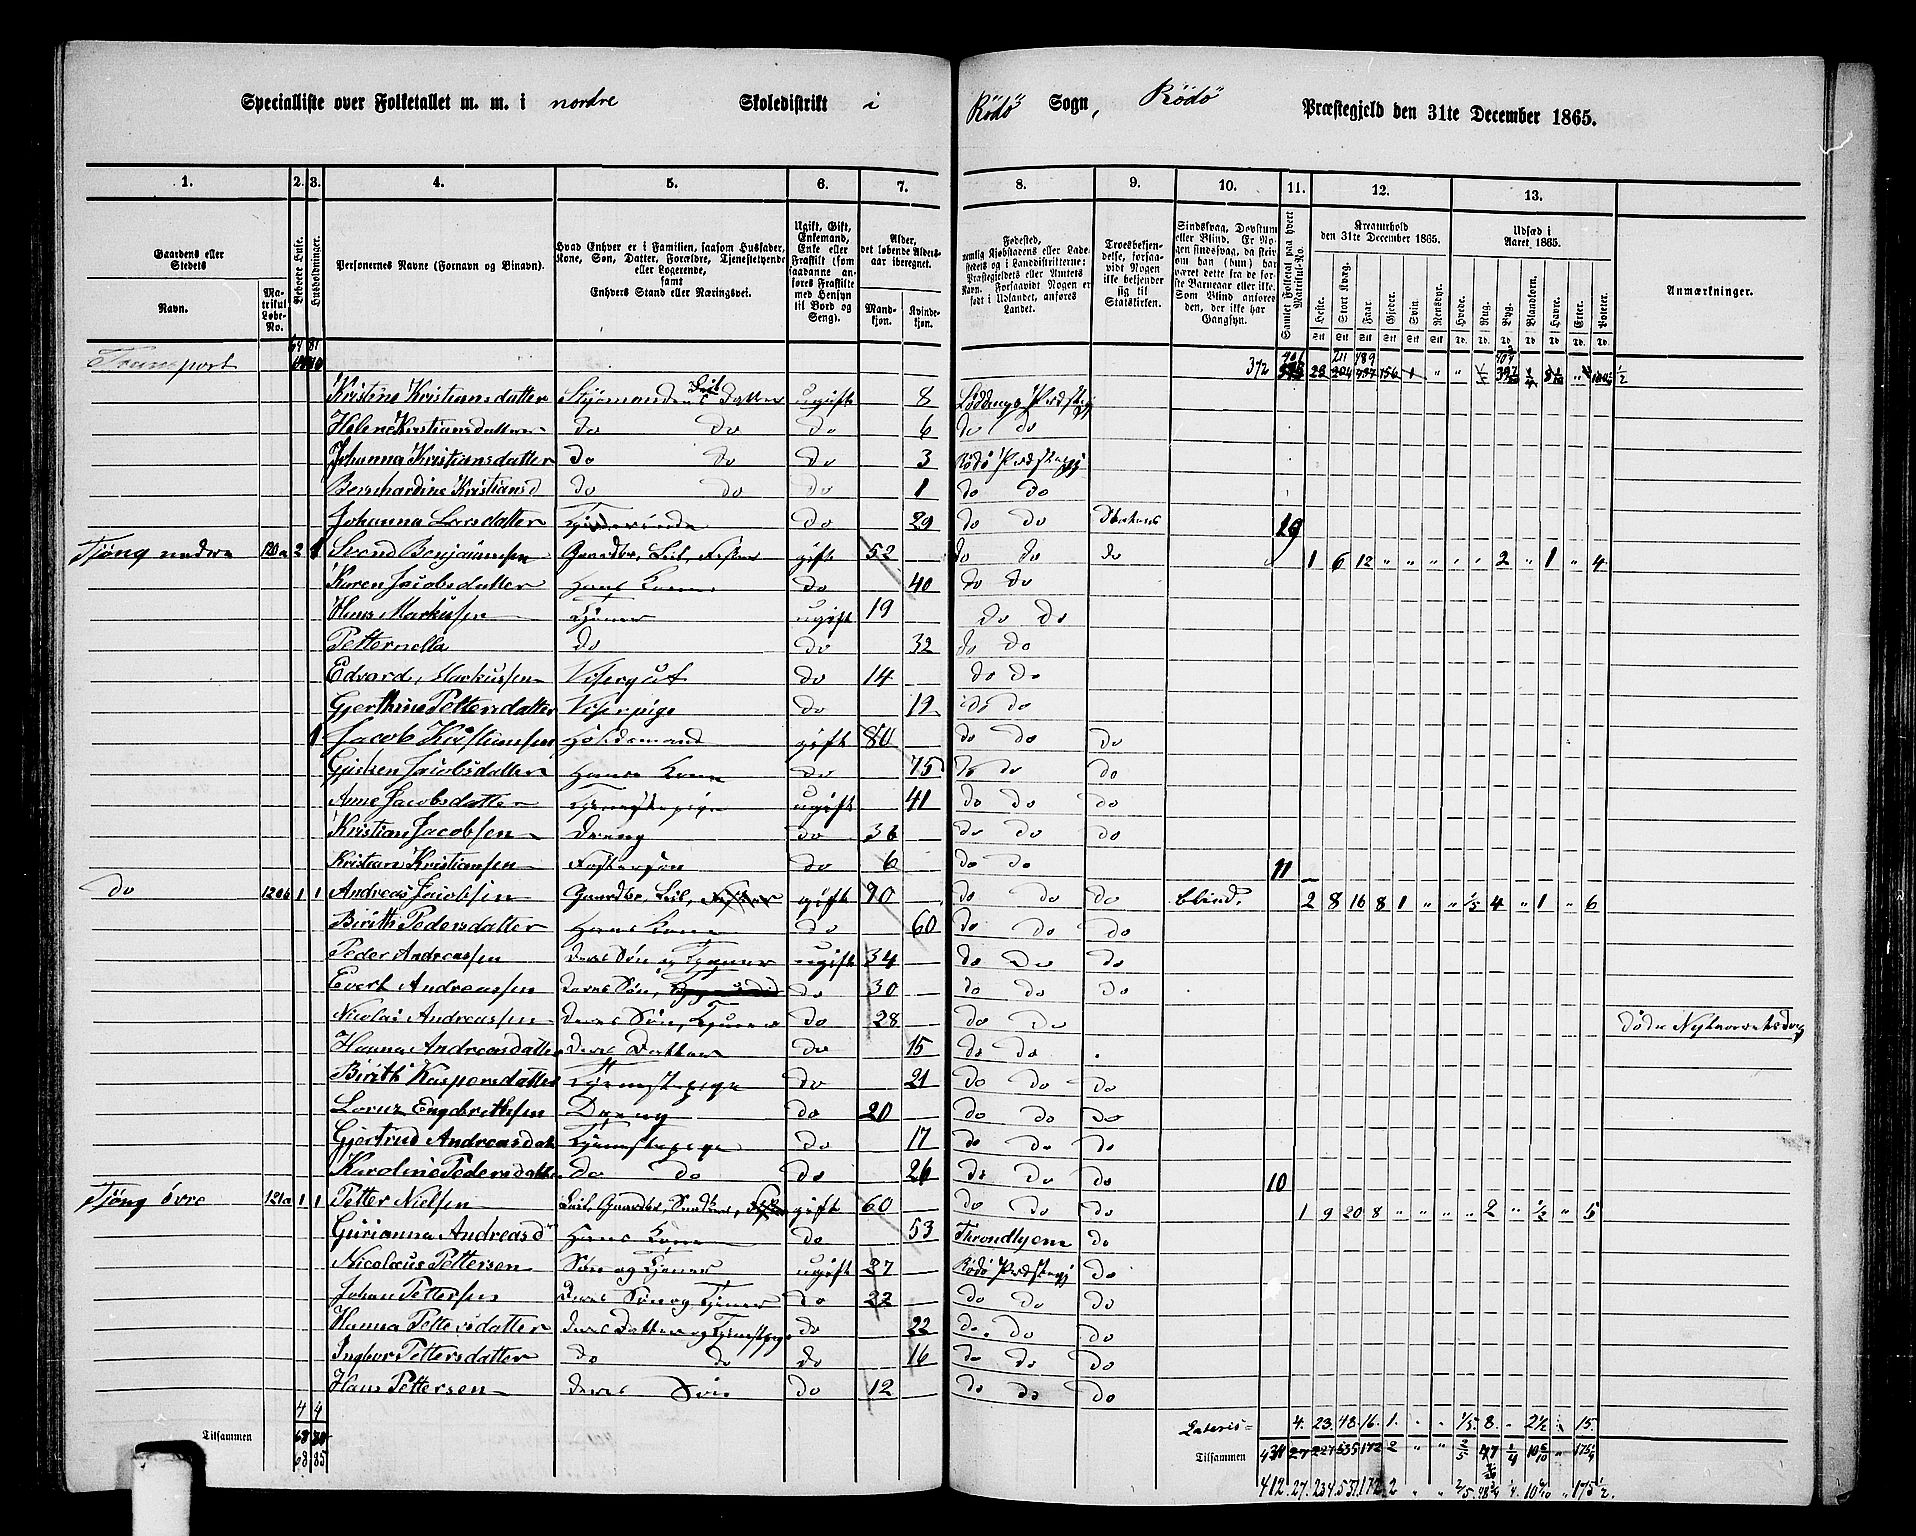 Specialliste over Folketallet m. m. i nordre Skoledistrikt i Rödö Sogn, Rödö Præstegjeld den 31te December 1865.
1. 2. 3. 4. 5. 6. 7. 8. 9. 10. 11. 12. 13.
Gaardens eller Stedets
Navn.
Matrikul Løbe-No.
Beboede Huse.
Husholdninger.
Personernes Navne (Fornavn og Binavn).
Hvad Enhver er i Familien, saasom Husfader, Kone, Søn, Datter, Forældre, Tjenestetyende eller Logerende, samt Enhvers Stand eller Næringsvei.
Ugift, Gift, Enkemand, Enke eller Fraskilt (som saadanne anføres Fraskilte med Hensyn til Bord og Seng).
Alder, det løbende Aldersaar iberegnet.
Mandkjøn. Kvindekjøn.
Fødested, nemlig Kjøbstadens eller Ladestedets og i Landdistrikter: Præstegjeldets eller Amtets Navn. Forsaavidt Nogen er født i Udlandet, anføres Landet.
Troesbekjendelse, forsaavidt Nogen ikke bekjender sig til Statskirken.
Sindssvag, Døvstum eller Blind. Er Nogen sindssvag, da skriv om han (hun) har været dette fra de første Barneaar eller ikke. Som Blind anføres den, der ikke har Gangsyn.
Samlet Folketal paa hvert Matrikul-No.
Kreaturhold den 31te December 1865.
Heste. Stort Kvæg. Faar. Gjeder. Svin. Rensdyr.
Udsæd i Aaret 1865.
Hvede. Rug. Byg. Blandkorn. Havre. Erter. Poteter.
Anmærkninger.
Transport
Kristine Kristiansdatter Styrmandens Datter ugift 8 Löddings Prdstgj
Helene Kristiansdatter do do do 6 do do
Johanna Kristiansdatter do do do 3 Rödö Prdstegj
Bernhardine Kristiansd do do do 1 do do
Johanna Larsdatter do 29 do do 29
Tjöng nedre 120a 2 1 Svend Benjaminsen Gaardbr, Leil, Fisker gift 52 do do do 1 6 12 " " " " " 2 " 1 " 4
Karen Jacobsdatter Hans Kone do 40 do do
Hans Markusen Tjener ugift 19 do do
Petternella do do 32 do do
Edvard Markussen Visergut do 14 do do
Gjerthine Pettersdatter Viserpige do 12 do do
1 Jacob Kristiansen Holdsmand gift 80 do do do
Gjirken Jacobsdatter Hans Kone do 75 do do do
Anne Jacobsdatter Tjenestepige ugift 41 do do do
Kristian Jacobsen Dreng do 36 do do do
Kristian Kristiansen Fostersøn do 6 do do 11
do 120b 1 1 Andreas Jacobsen Gaardbr, Leil, Fisker gift 70 do do do blind. 2 8 16 8 1 " " 1/5 4 " 1 " 6
Birith Pedersdatter Hans Kone do 60 do do do
Peder Andreassen Deres Søn og Tjener ugift 34 do do do
Evert Andreassen Deres Søn, do 30 do do do
Nicolai Andreassen Deres Søn, Tjener do 28 do do
Hanna Andreasdatter Deres Datter do 15 do do
Birith Kaspersdatter Tjenestepige do 21 do do do
Lorns Engebrethsen Dreng do 20 do do do
Gjertrud Andreasdatt Tjenestepige do 17 do do do
Karoline Pedersdatter do do do 26 do do do 10
Tjöng övre 121a 1 1 Petter Nielsen Leil, Gaardbr, gift 60 do do do 1 9 20 8 " " " " 2 " 1/2 " 5
Gurianna Andreasd Hans Kone do 53 Throndhjem do
Nicolaus Pettersen Søn og Tjener ugift 27 Rödö Prdstegj do
Johan Pettersen Deres Søn og Tjener do 22 do do do
Hanna Pettersdatter Deres Datter og Tjenestepige do 22 do do do
Ingbor Pettersdatter do do do 16 do do do
Hans Pettersen Deres Søn do 12 do do do
4 4 Lateris 4. 23. 48. 16. 1. " " 1/5 8. " 2 1/2 " 15.
Tilsammen 68 85 Tilsammen
412. 27. 234. 537. 172. 2 " " 175 1/2.